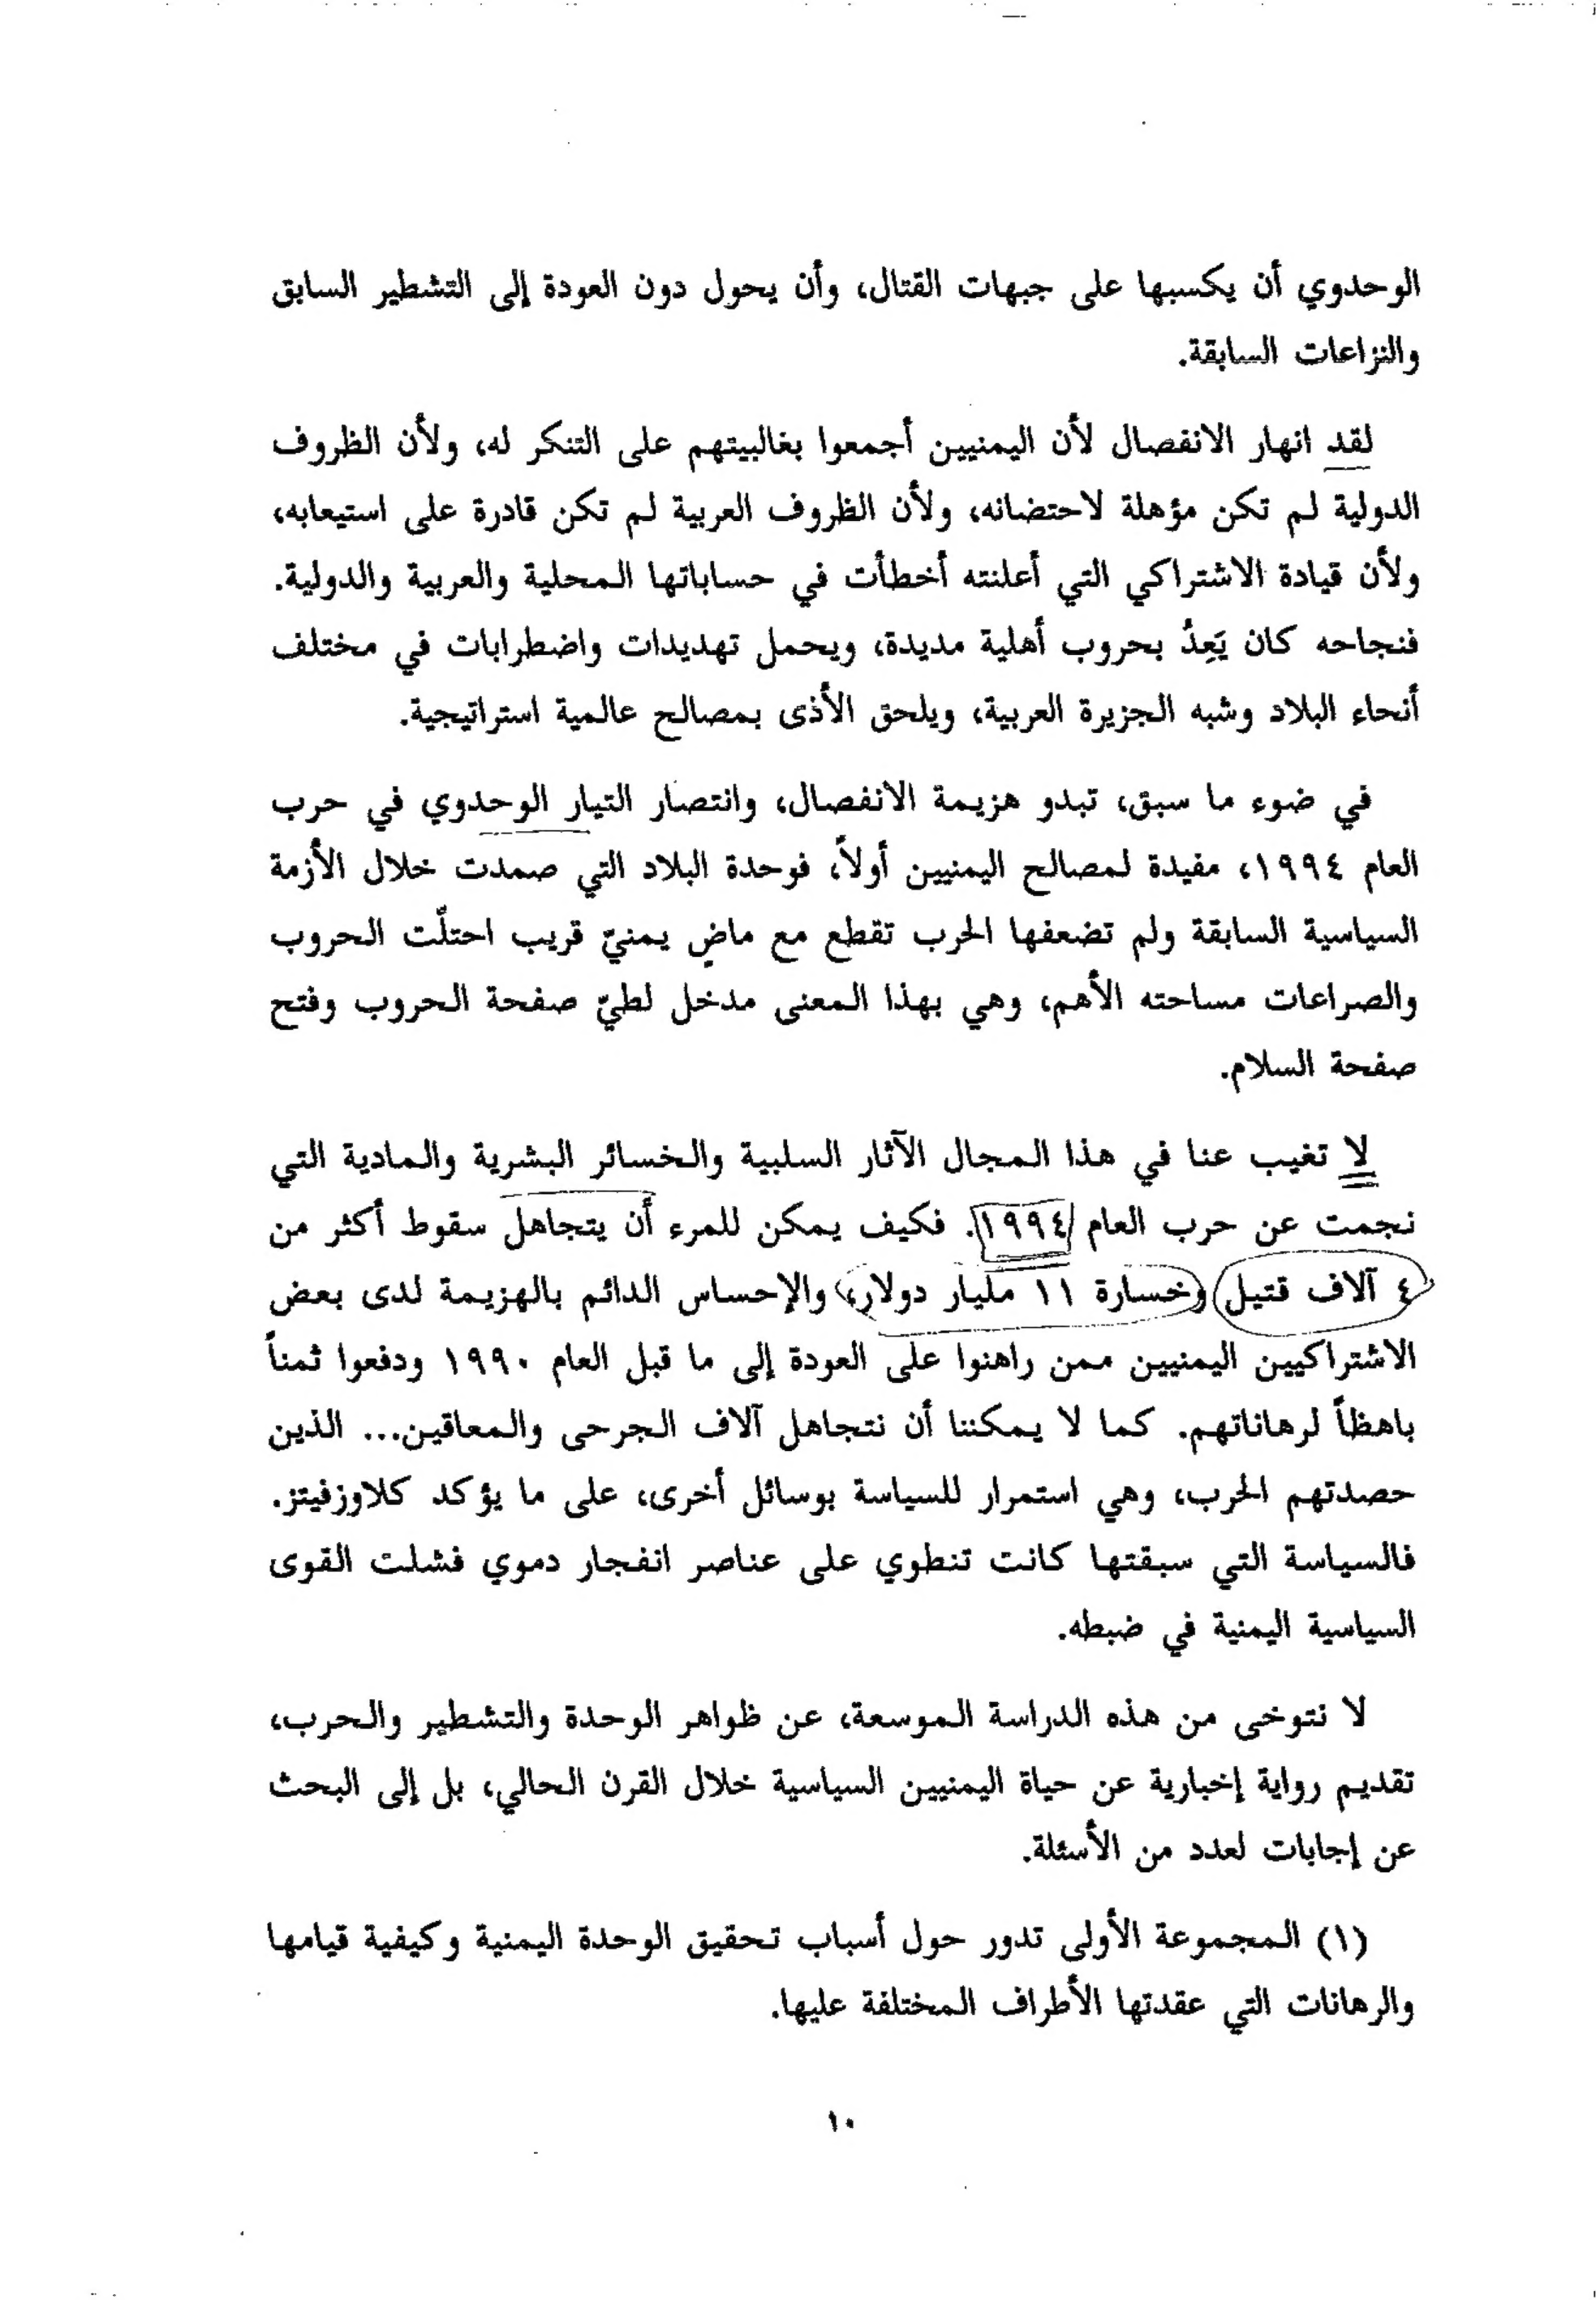 الوحدوي أن يكسبها على جبهات القتال، وأن يحول دون العودة إلى التشطير السابق
والنزاعات السابقة.
لقد انهار الانفصال لأن اليمنيين أجمعوا بغالبيتهم على التنكر له، ولأن الظروف
الدولية لم تكن مؤهلة لاحتضانه، ولأن الظروف العربية لم تكن قادرة على استيعابه،
ولأن قيادة الاشتراكي التي أعلنته أخطأت في حساباتها المحلية والعربية والدولية.
فنجاحه كان يَعِدُ بحروب أهلية مديدة، ويحمل تهديدات واضطرابات في مختلف
أنحاء البلاد وشبه الجزيرة العربية، ويلحق الأذى بمصالح عالمية استراتيجية.
في ضوء ما سبق، تبدو هزيمة الانفصال، وانتصار التيار الوحدوي في حرب
العام ١٩٩٤، مفيدة لمصالح اليمنيين أولاً، فوحدة البلاد التي صمدت خلال الأزمة
السياسية السابقة ولم تضعفها الحرب تقطع مع ماضٍ يمنيّ قريب احتلّت الحروب
والصراعات مساحته الأهم، وهي بهذا المعنى مدخل لطيّ صفحة الحروب وفتح
صفحة السلام.
لا تغيب عنا في هذا المجال الآثار السلبية والخسائر البشرية والمادية التي
نجمت عن حرب العام ١٩٩٤. فكيف يمكن للمرء أن يتجاهل سقوط أكثر من
٤ آلاف قتيل وخسارة ١١ مليار دولار، والإحساس الدائم بالهزيمة لدى بعض
الاشتراكيين اليمنيين ممن راهنوا على العودة إلى ما قبل العام ١٩٩٠ ودفعوا ثمناً
باهظاً لرهاناتهم. كما لا يمكننا أن نتجاهل آلاف الجرحى والمعاقين... الذين
حصدتهم الحرب، وهي استمرار للسياسة بوسائل أخرى، على ما يؤكد كلاوزفيتز.
فالسياسة التي سبقتها كانت تنطوي على عناصر انفجار دموي فشلت القوى
السياسية اليمنية في ضبطه.
لا نتوخى من هذه الدراسة الموسعة، عن ظواهر الوحدة والتشطير والحرب،
تقديم رواية إخبارية عن حياة اليمنيين السياسية خلال القرن الحالي، بل إلى البحث
عن إجابات لعدد من الأسئلة.
(١) المجموعة الأولى تدور حول أسباب تحقيق الوحدة اليمنية وكيفية قيامها
والرهانات التي عقدتها الأطراف المختلفة عليها.
١٠